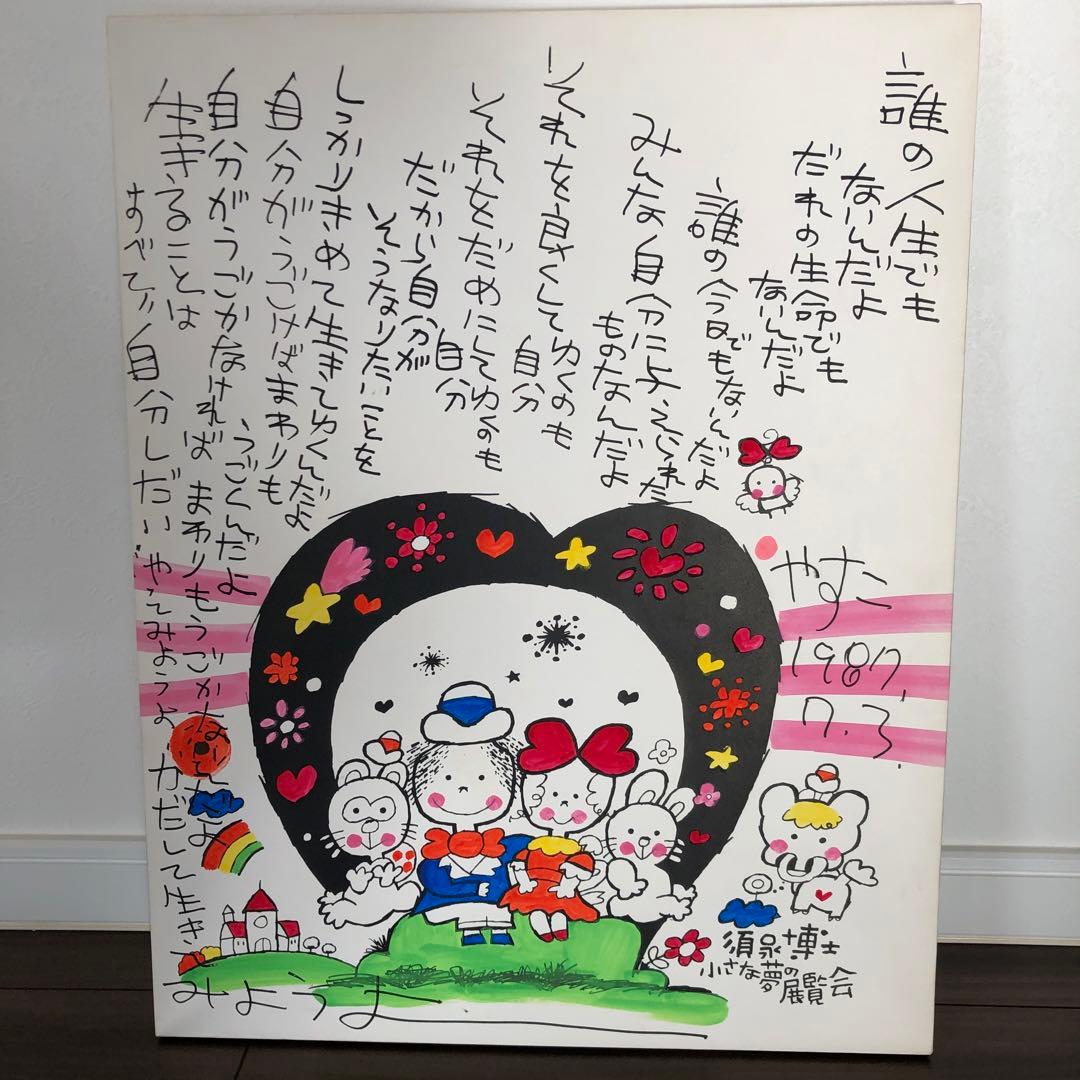 誰の人生でも
ないんだよ
だれの生命でも
ないんだよ
誰の今日でもないんだよ
みんな自分に与えられた
ものなんだよ
それを良くしてゆくのも
自分
それをだめにしてゆくのも
自分
だから自分が
そうなりたいことを
しっかりきめて生きてゆくんだよ
自分がうごけばまわりも
うごくんだよ
自分がうごかなければ
まわりもうごかないんだよ
生きることは
すべて自分しだい
やってみようよ
かだして生きて
みようよ
やすこ
1987.
7.3.
須泉博士
小さな夢の
展覧会